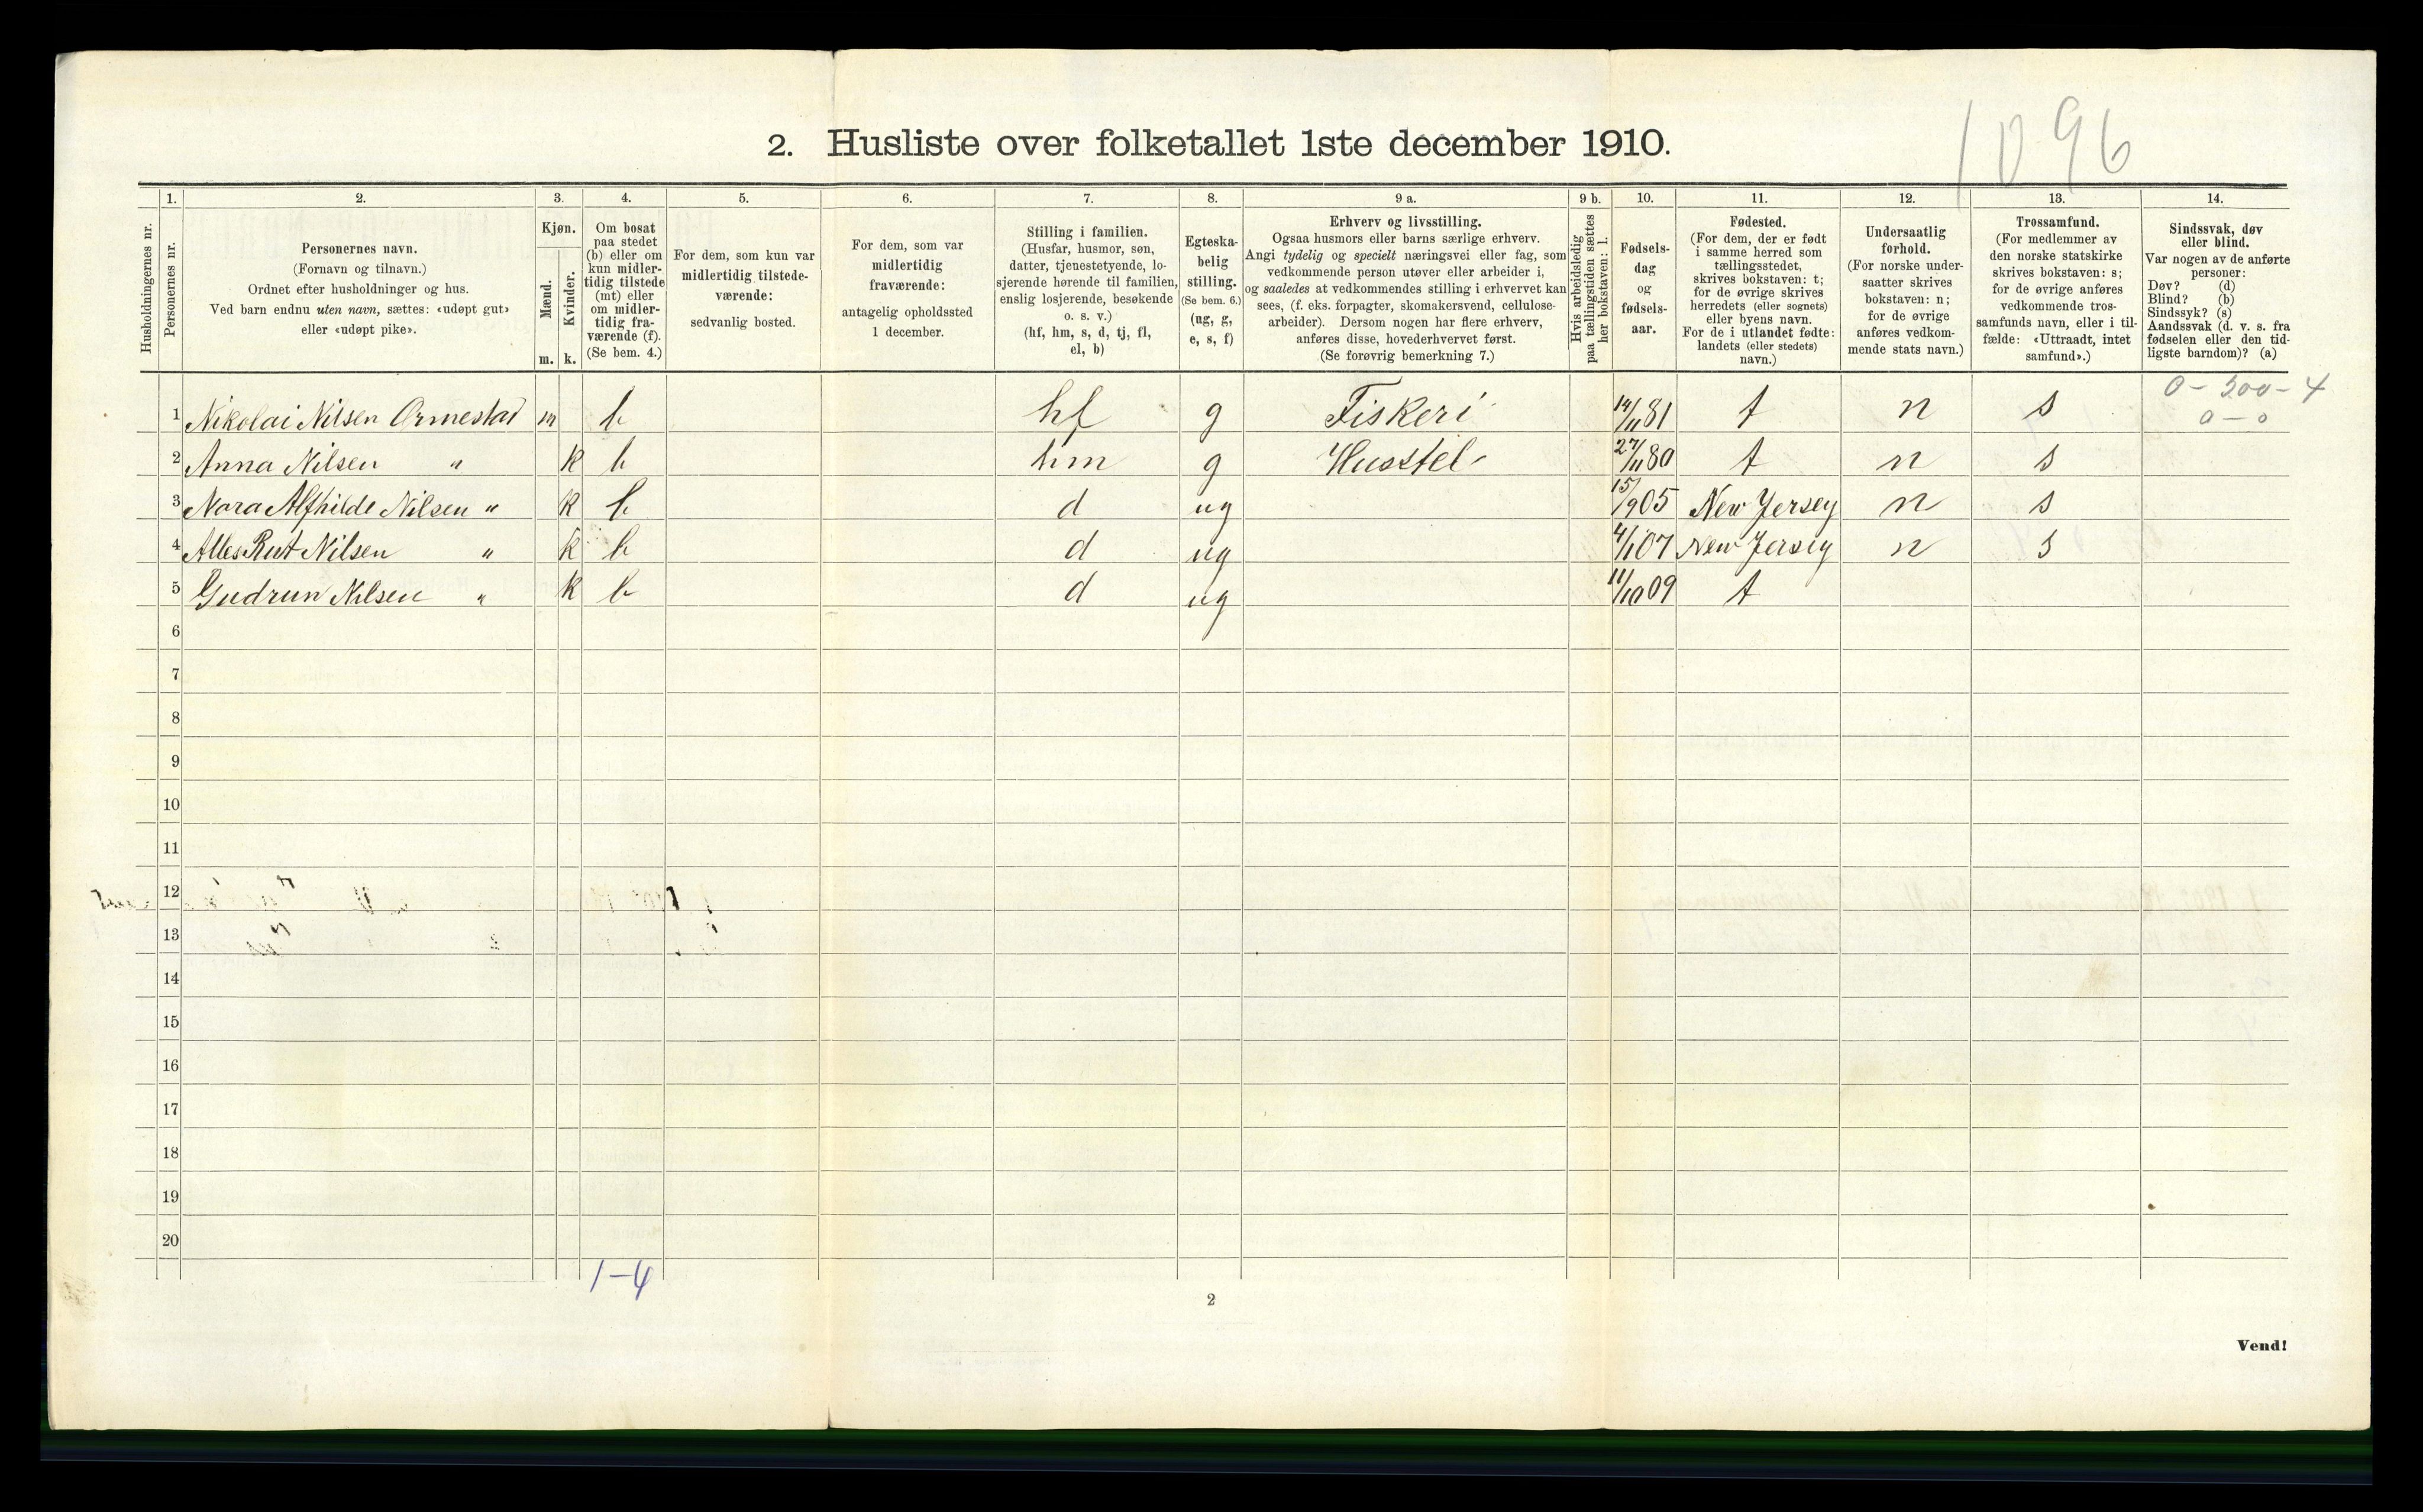 1096
2. Husliste over folketallet 1ste december 1910.
1. 2. 3. 4. 5. 6. 7. 8. 9 a. 9 b. 10. 11. 12. 13. 14.
Husholdningernes nr.
Personernes nr.
Personernes navn.
(Fornavn og tilnavn.)
Ordnet efter husholdninger og hus.
Ved barn endnu uten navn, sættes: «udøpt gut»
eller «udøpt pike».
Kjøn.
Mænd.
Kvinder.
m. k.
Om bosat
paa stedet
(b) eller om
kun midler-
tidig tilstede
(mt) eller
om midler-
tidig fra-
værende (f).
(Se bem. 4.)
For dem, som kun var
midlertidig tilstede-
værende:
sedvanlig bosted.
For dem, som var
midlertidig
fraværende:
antagelig opholdssted
1 december.
Stilling i familien.
(Husfar, husmor, søn,
datter, tjenestetyende, lo-
sjerende hørende til familien,
enslig losjerende, besøkende
o. s. v.)
(hf, hm, s, d, tj, fl,
el, b)
Egteska-
belig
stilling.
(Se bem. 6.)
(ug, g,
e, s, f)
Erhverv og livsstilling.
Ogsaa husmors eller barns særlige erhverv.
Angi tydelig og specielt næringsvei eller fag, som
vedkommende person utøver eller arbeider i,
og saaledes at vedkommendes stilling i erhvervet kan
sees, (f. eks. forpagter, skomakersvend, cellulose-
arbeider). Dersom nogen har flere erhverv,
anføres disse, hovederhvervet først.
(Se forøvrig bemerkning 7.)
Hvis arbeidsledig
paa tællingstiden sættes
her bokstaven: l.
Fødsels-
dag
og
fødsels-
aar.
Fødested.
(For dem, der er født
i samme herred som
tællingsstedet,
skrives bokstaven: t;
for de øvrige skrives
herredets (eller sognets)
eller byens navn.
For de i utlandet fødte:
landets (eller stedets)
navn.)
Undersaatlig
forhold.
(For norske under-
saatter skrives
bokstaven: n;
for de øvrige
anføres vedkom-
mende stats navn.)
Trossamfund.
(For medlemmer av
den norske statskirke
skrives bokstaven: s;
for de øvrige anføres
vedkommende tros-
samfunds navn, eller i til-
fælde: «Uttraadt, intet
samfund».)
Sindssvak, døv
eller blind.
Var nogen av de anførte
personer:
Døv? (d)
Blind? (b)
Sindssyk? (s)
Aandssvak (d. v. s. fra
fødselen eller den tid-
ligste barndom)? (a)
0 - 300 - 4
0 - 0
1 Nikolai Nilsen Ormestad m b hf g Fiskeri 14/11 81 t n s
2 Anna Nilsen " k b hm g Husstel 27/11 80 t n s
3 Nora Alfhilde Nilsen " k b d ug 15/9 05 New Jersey n s
4 Alles Rut Nilsen " k b d ug 4/1 07 New Jersey n s
5 Gudrun Nilsen " k b d ug 11/10 09 t
6
7
8
9
10
11
12
13
14
15
16
17
18
19
20
1-4
2
Vend!